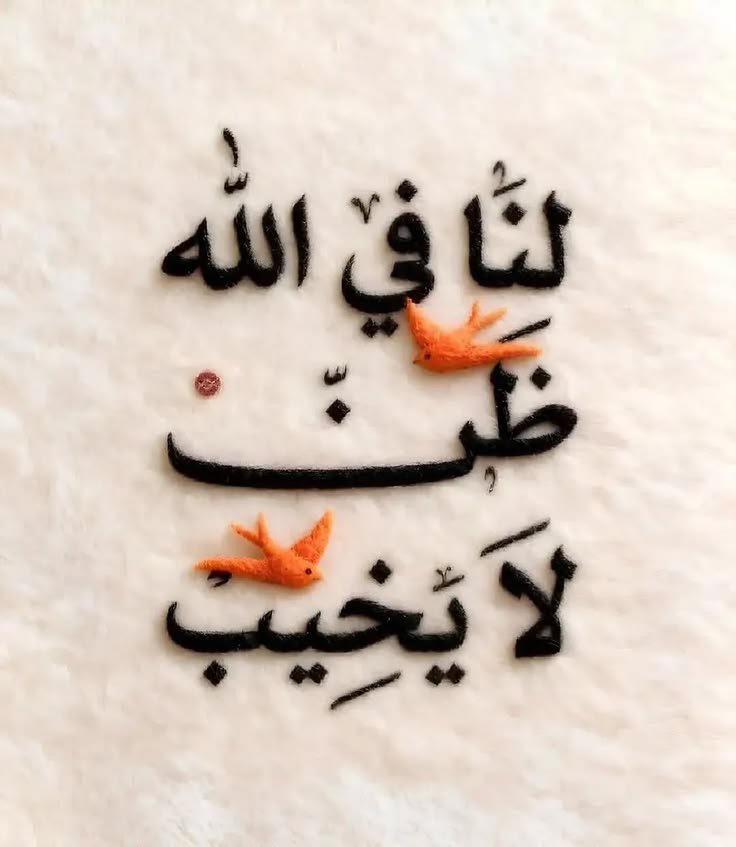 لنَا في الله
ظَنّ
لَا يَخِيب